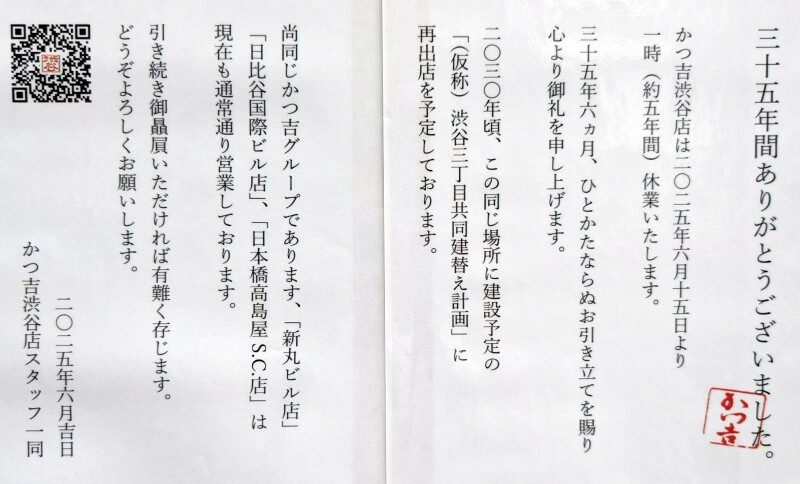 三十五年間ありがとうございました。
かつ吉
かつ吉渋谷店は二〇二五年六月十五日より
一時（約五年間）休業いたします。
三十五年六ヵ月、ひとかたならぬお引き立てを賜り
心より御礼を申し上げます。
二〇三〇年頃、この同じ場所に建設予定の
「（仮称）渋谷三丁目共同建替え計画」に
再出店を予定しております。
尚同じかつ吉グループであります、「新丸ビル店」
「日比谷国際ビル店」、「日本橋高島屋S.C.店」は
現在も通常通り営業しております。
引き続き御贔屓いただければ有難く存じます。
どうぞよろしくお願いします。
二〇二五年六月吉日
かつ吉渋谷店スタッフ一同
渋谷